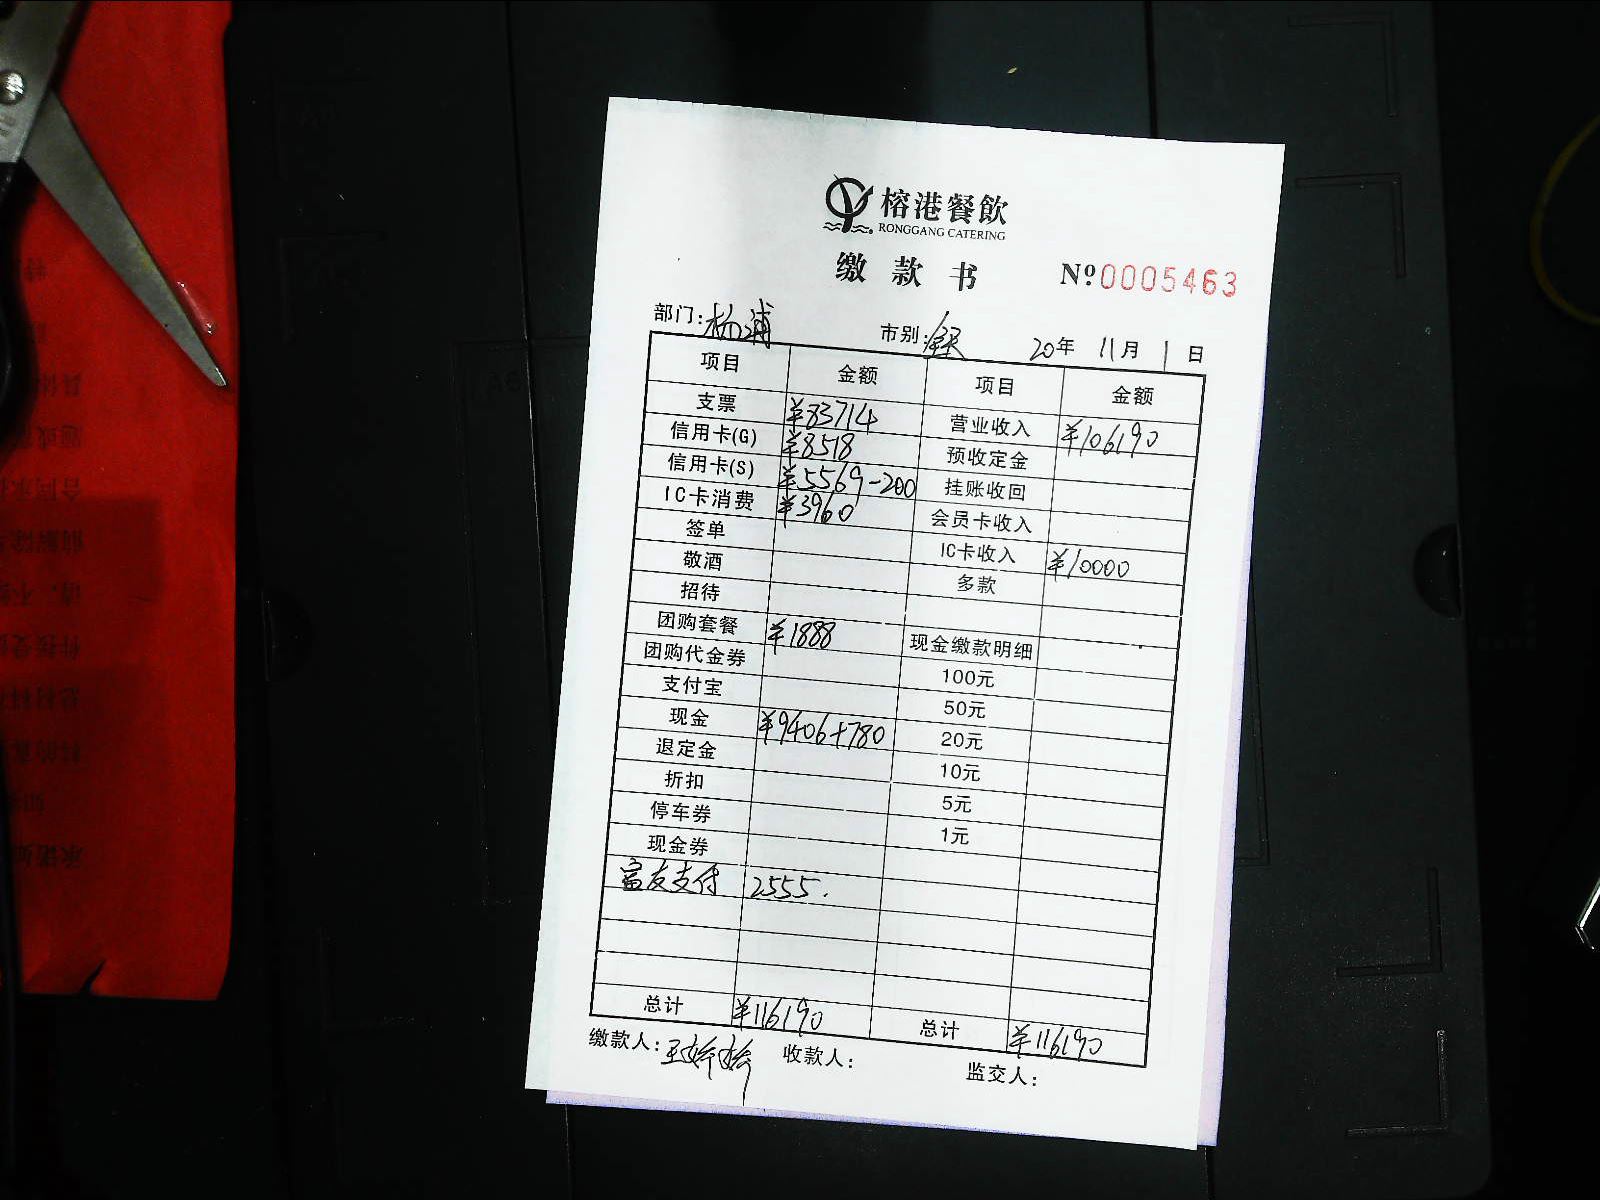 榕港餐飲
RONGGANG CATERING
缴款书 Nº0005463
部门:杨浦 市别:全天 20年 11月 1日
项目 金额 项目 金额
支票 ¥83714 营业收入 ¥106190
信用卡(G) ¥8518 预收定金
信用卡(S) ¥5569-200 挂账收回
IC卡消费 ¥3960 会员卡收入
签单 IC卡收入 ¥10000
敬酒 多款
招待
团购套餐 ¥1888 现金缴款明细
团购代金券 100元
支付宝 50元
现金 ¥9406+780 20元
退定金 10元
折扣 5元
停车券 1元
现金券
富友支付 2555.
总计 ¥116190 总计 ¥116190
缴款人:王婷婷 收款人: 监交人: